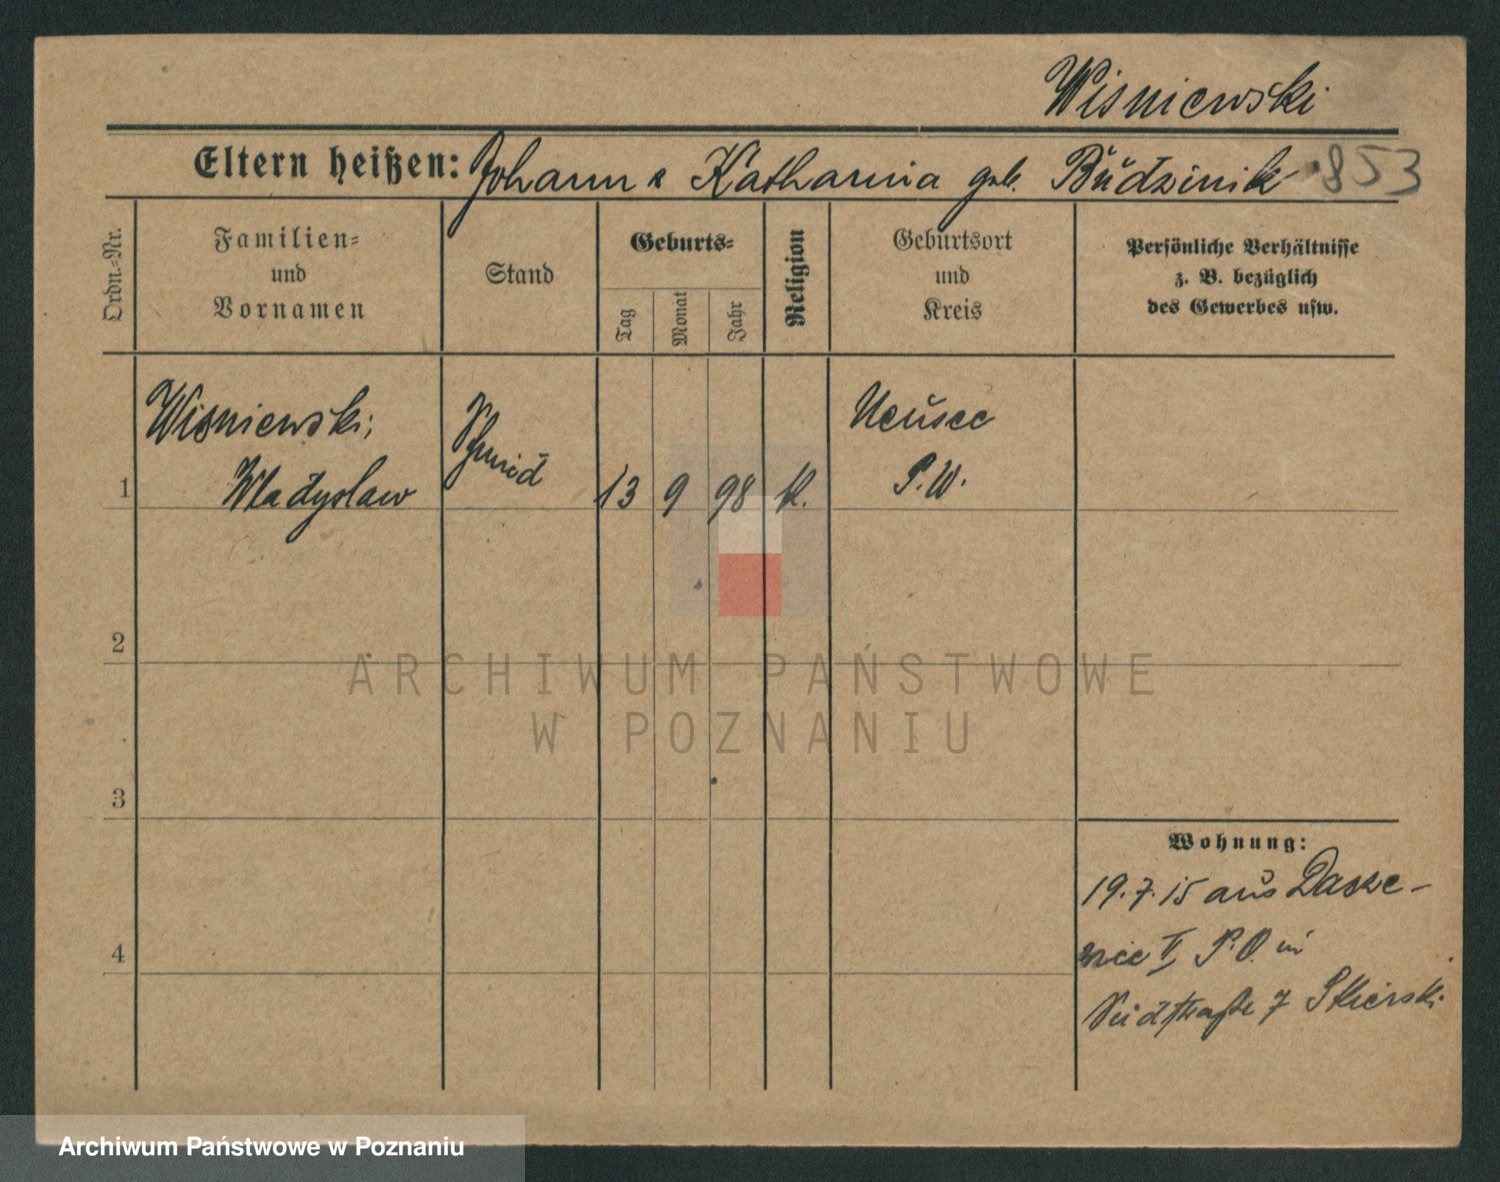 Wisniewski
Eltern heißen: Johann & Katharina geb. Budzinik 853
Ordn.-Nr.
Familien-
und
Vornamen
Stand
Geburts-
Tag
Monat
Jahr
Religion
Geburtsort
und
Kreis
Persönliche Verhältnisse
z. B. bezüglich
des Gewerbes usw.
1
Wisniewski,
Wladyslaw
Schmied
13 9 98 k.
Neusee
P.W.
2
3
4
Wohnung:
19.7.15 aus Dasze-
wice P.O. in
Südstraße 7 Skierski
ARCHIWUM PAŃSTWOWE
W POZNANIU
Archiwum Państwowe w Poznaniu